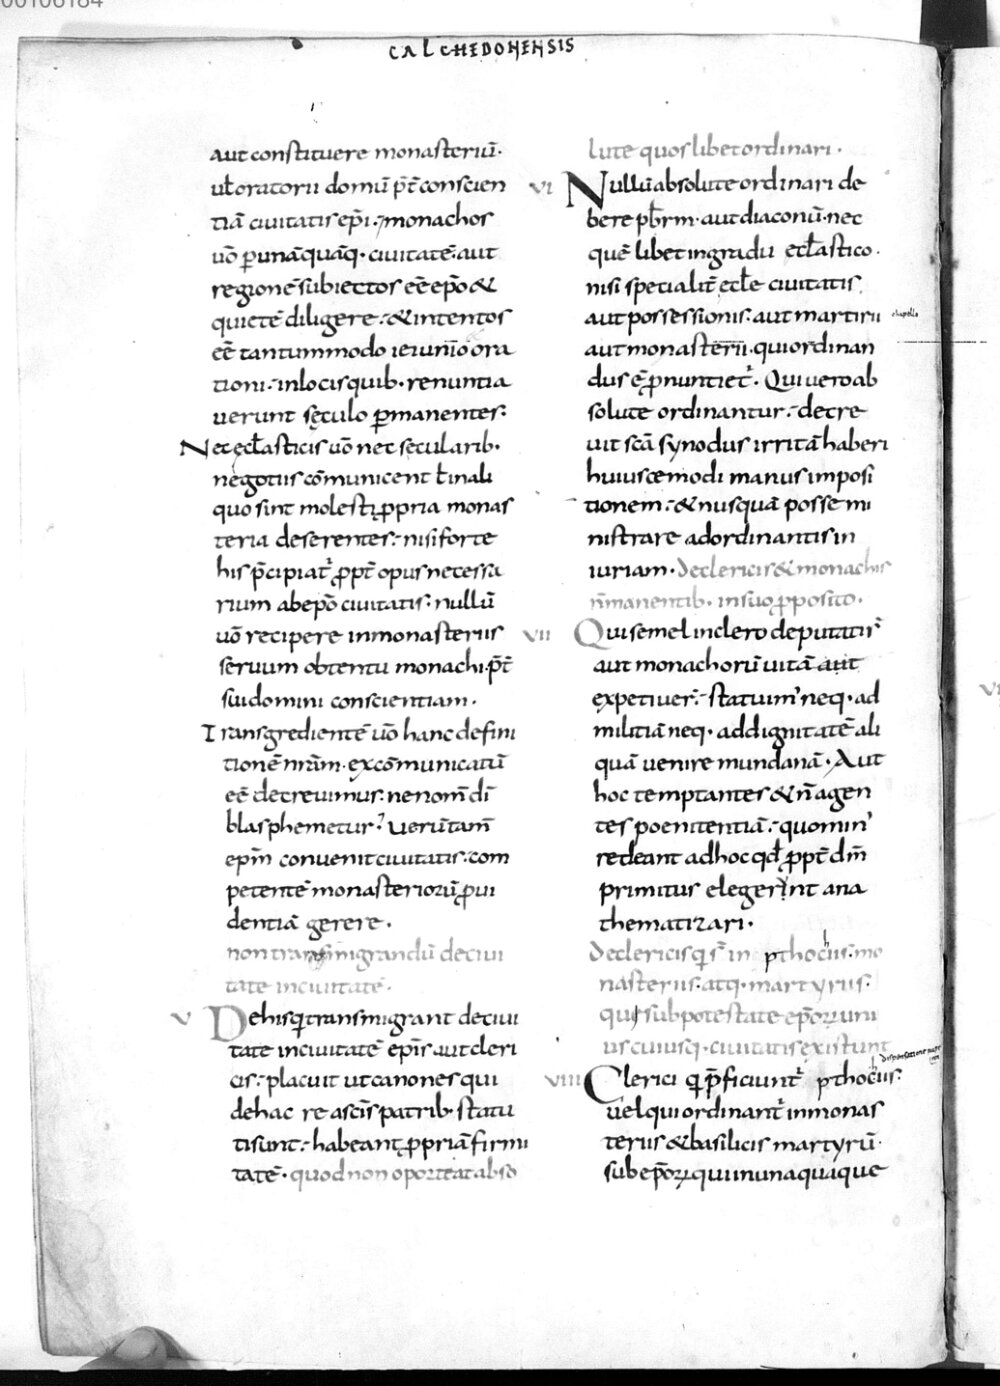 00106184
CALCHEDONENSIS
aut constituere monasteriū·
ul̄ oratorii domū p̄t̄ conscien
tiā ciuitatis ep̄i· monachos
uō p unāquāq· ciuitatē· aut
regionē subiectos eē ep̄o &
quietē diligere· & intentos
eē tantummodo ieiunio ora
tioni· in locis quib· renuntia
uerunt sęculo p̄manentes·
Nec ecl̄asticis uō nec sęcularib·
negotiis cōmunicent l̄ in ali
quo sint molesti ppria monas
teria deserentes· nisi forte
his p̄cipiat̄ ppt̄ opus necessa
rium ab ep̄o ciuitatis· nullū
uō recipere in monasteriis
seruum obtentu monachi· p̄t̄
sui domini conscientiam·
Transgredientē uō hanc defini
tionē nr̄am· excōmunicatū
eē decreuimus· ne nom̄ dī
blasphemetur· Uerūtam̄
ep̄m conuenit ciuitatis· com
petentē monasteriorū proui
dentiā gerere·
non transmigrandū de ciui
tate in ciuitatē·
V De his q transmigrant de ciui
tate in ciuitatē ep̄is aut cleri
cis· placuit ut canones qui
de hac re a sc̄is patrib· statu
ti sunt· habeant ppriā firmi
tatē· quod non oporteat abso
lute quoslibet ordinari·
VI Nullū absolute ordinari de
bere pb̄rm· aut diaconū· nec
quē libet in gradu ecl̄astico·
nisi specialit̄ ecl̄e ciuitatis
aut possessionis· aut martirii capella
aut monasterii· qui ordinan
dus ē pnuntiet̄· Qui uero ab
solute ordinantur· decre
uit sc̄a synodus irritā haberi
huiuscemodi manus imposi
tionem· & nusquā posse mi
nistrare ad ordinantis in
iuriam· De clericis & monachis
n̄ manentib· in suo pposito·
VII Qui semel in clero deputati s̄
aut monachorū uitā aut
expetiuer̄· statuim' neq· ad
militiā neq· ad dignitatē ali
quā uenire mundanā· Aut
hoc temptantes & n̄ agen
tes poenitentiā· quomin'
redeant ad hoc qd̄ ppt̄ dm̄
primitus elegerint ana
thematizari·
De clericis q s̄ in pthociis· mo
nasteriis· atq· martyriis·
qui sub potestate ep̄orum uni
us cuiusq· ciuitatis existunt
VIII Clerici q p̄ficiunt̄ pthociis·
uel qui ordinant̄ in monas
teriis & basilicis martyrū·
sub ep̄orum qui in unaquaque